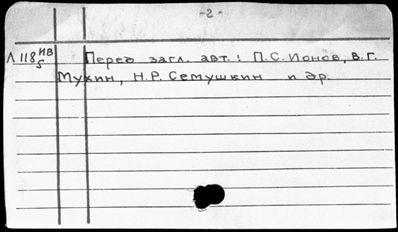 -2-
Л 118 ИВ/5 Перед загл. авт.: П.С. Ионов, В.Г.
Мухин, Н.Р. Семушкин и др.